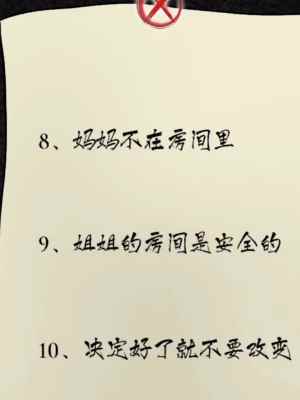 8、妈妈不在房间里
9、姐姐的房间是安全的
10、决定好了就不要改变